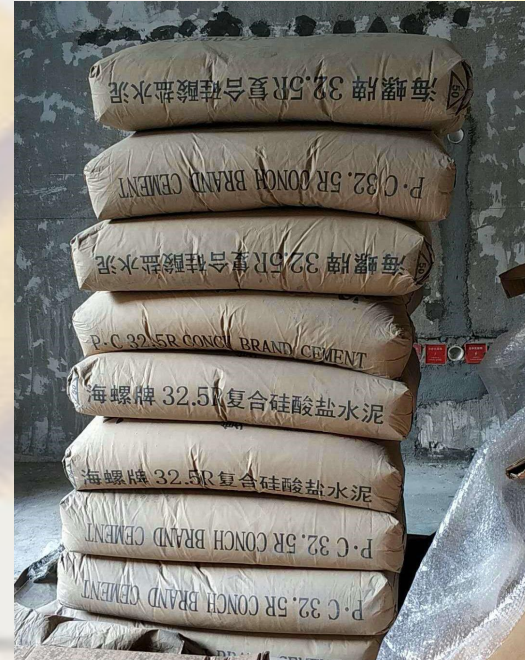 海螺牌 32.5R复合硅酸盐水泥
P·C 32.5R CONCH BRAND CEMENT
海螺牌 32.5R复合硅酸盐水泥
P·C 32.5R CONCH BRAND CEMENT
海螺牌 32.5R复合硅酸盐水泥
海螺牌 32.5R复合硅酸盐水泥
P·C 32.5R CONCH BRAND CEMENT
P·C 32.5R CONCH BRAND CEMENT